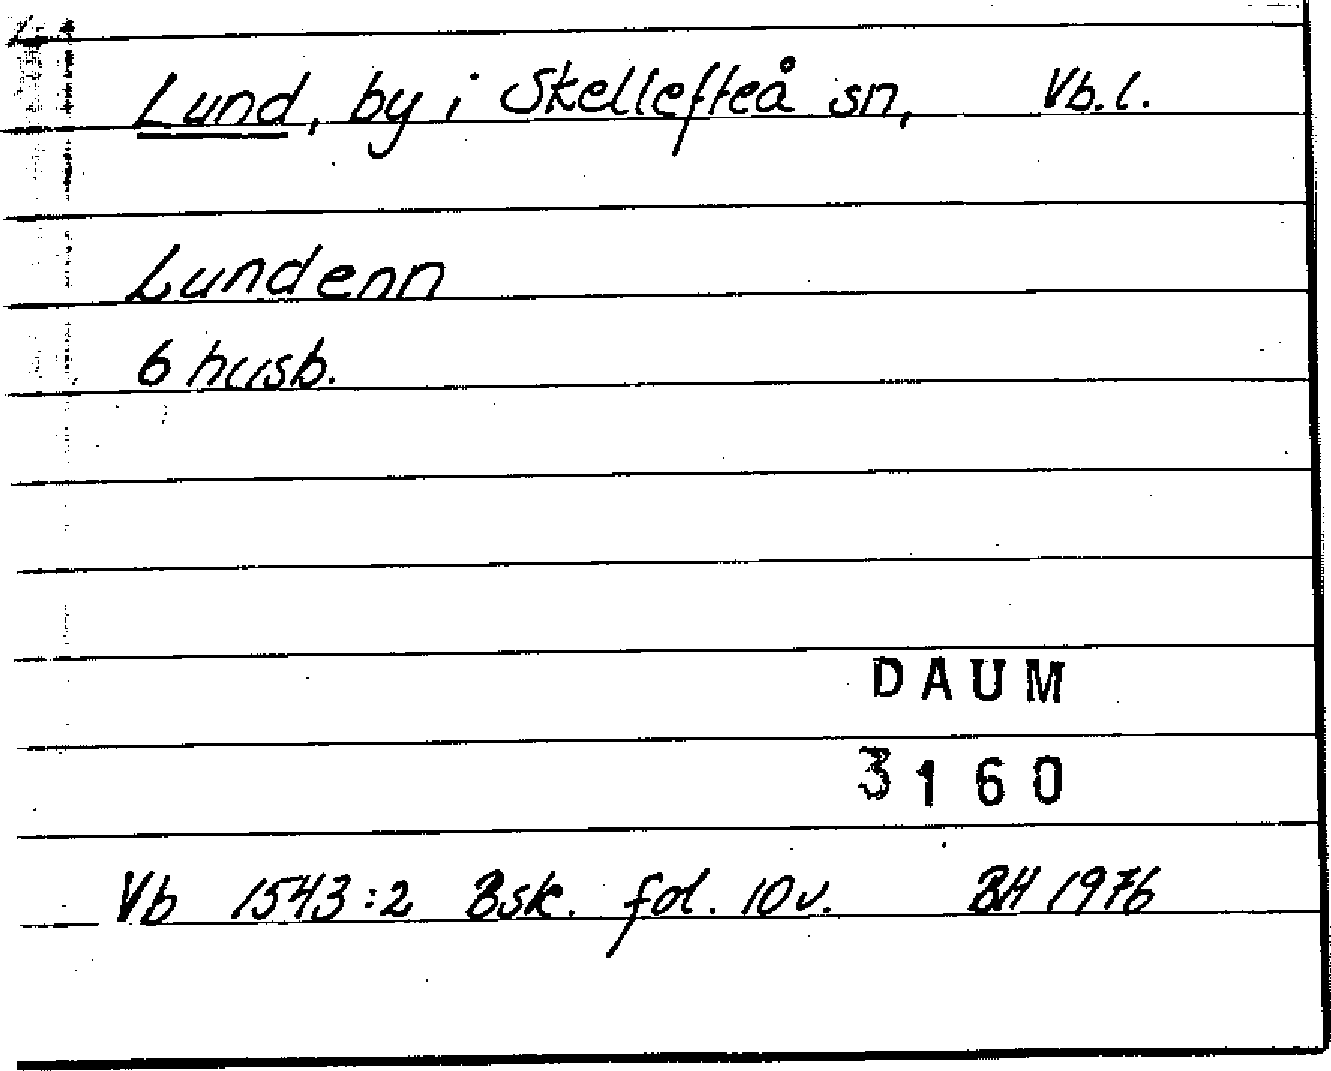 Lund, by i Skellefteå sn, Vb.l.
Lundenn
6 husb.
DAUM
3160
Vb 1543:2 Bsk. fol. 10v. BH 1976